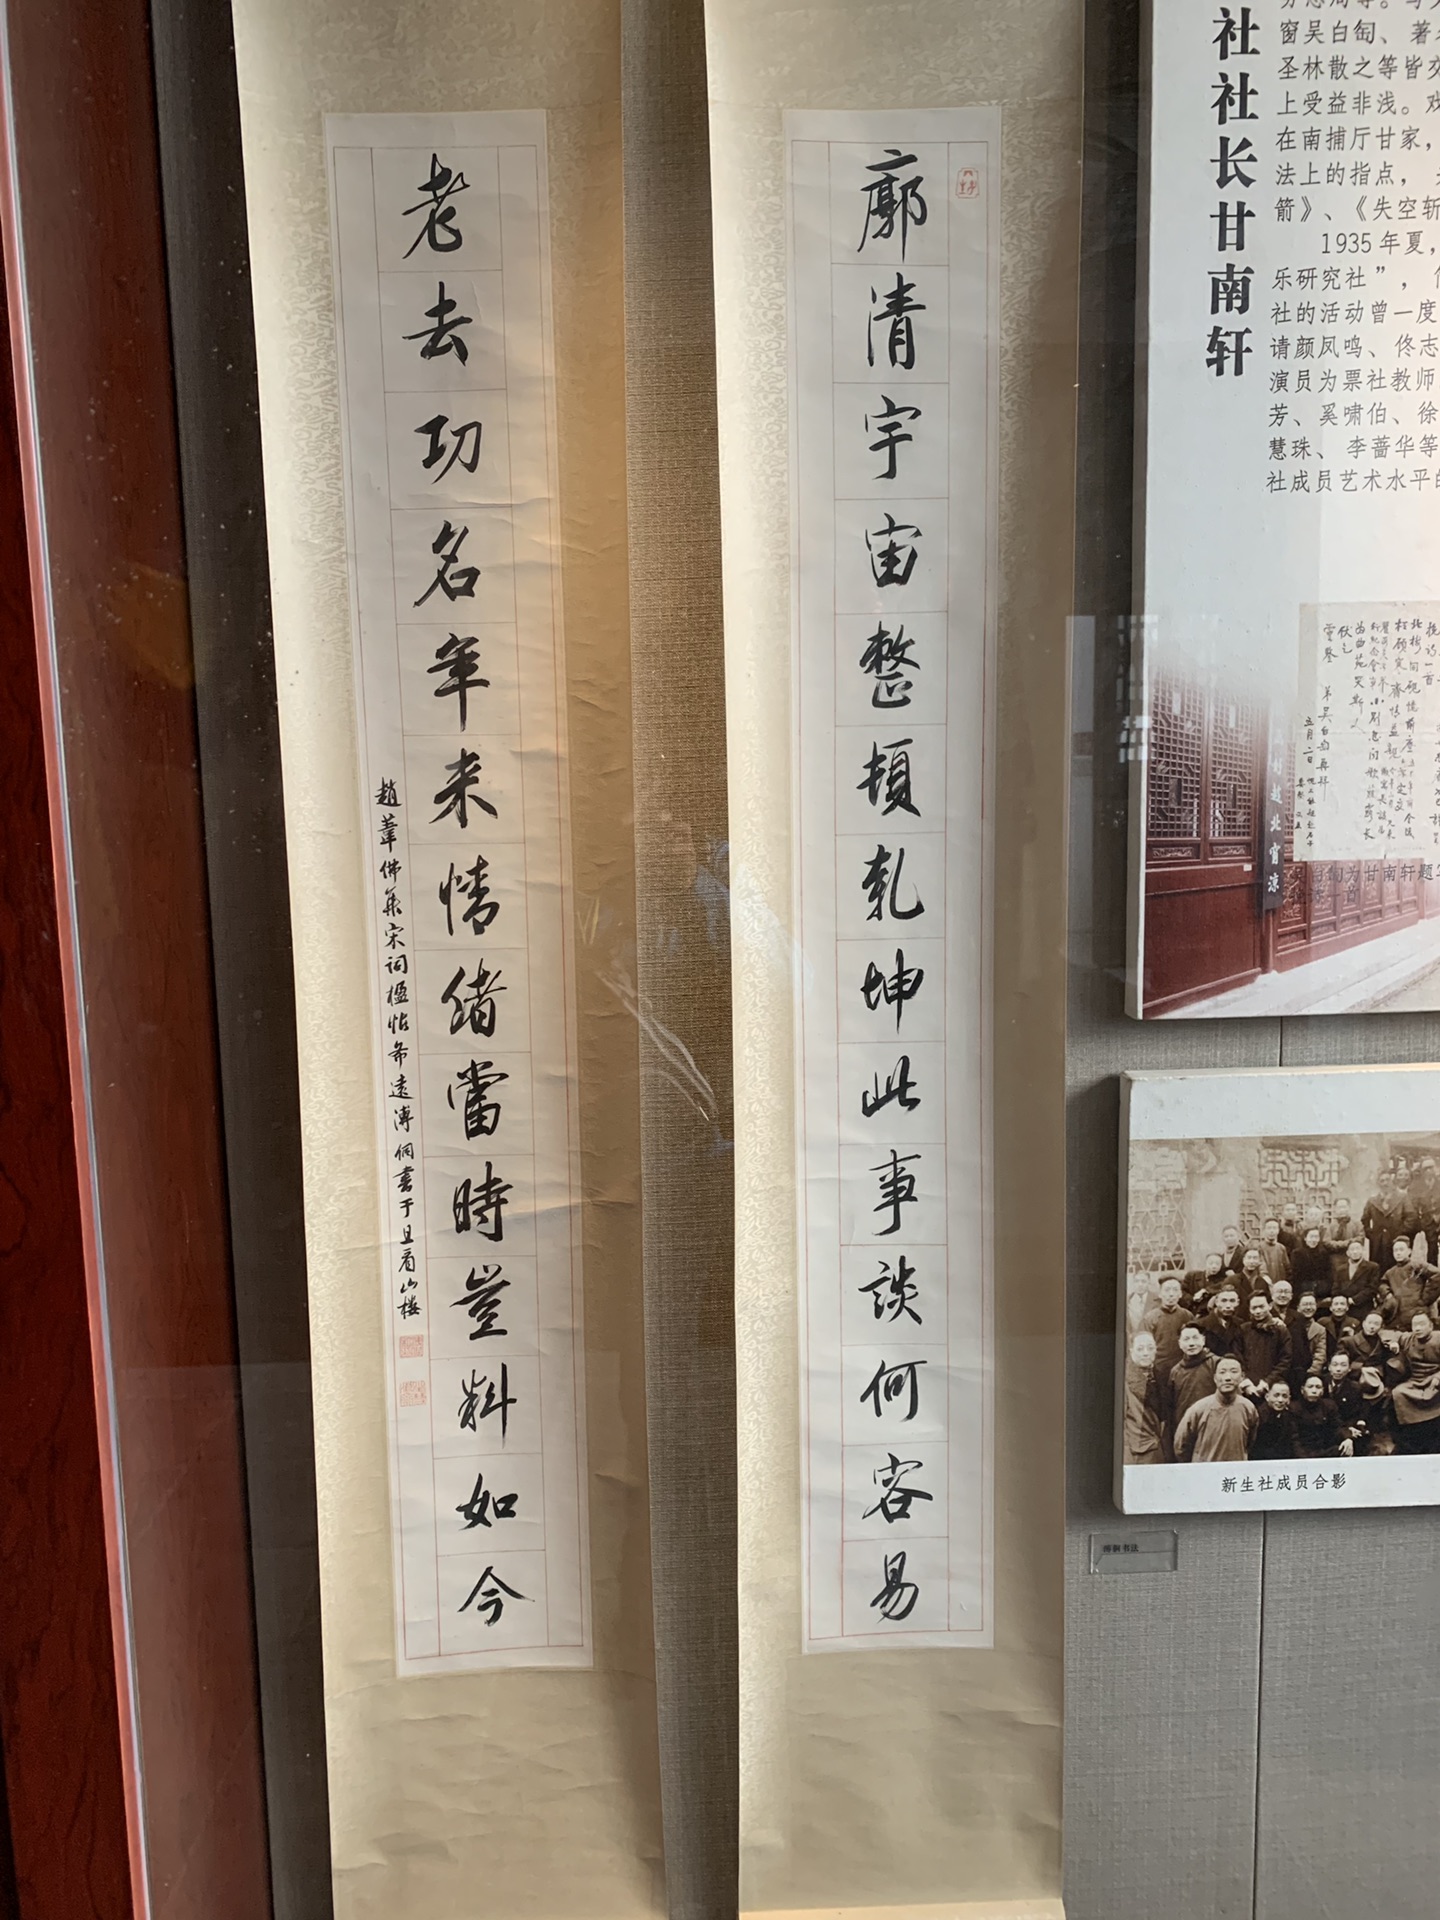 廓清宇宙整頓乾坤此事談何容易
老去功名年来情绪當時豈料如今
趙葦佛集宋词楹帖希遠溥侗書于且看山楼
社社长甘南轩
窗吴白匋、著
圣林散之等皆交
上受益非浅。戏
在南捕厅甘家，
法上的指点，
箭》、《失空斩
1935年夏，
乐研究社”，
社的活动曾一度
请颜凤鸣、佟志
演员为票社教师
芳、奚啸伯、徐
慧珠、李蔷华等
社成员艺术水平的
为甘南轩题
新生社成员合影
溥侗书法